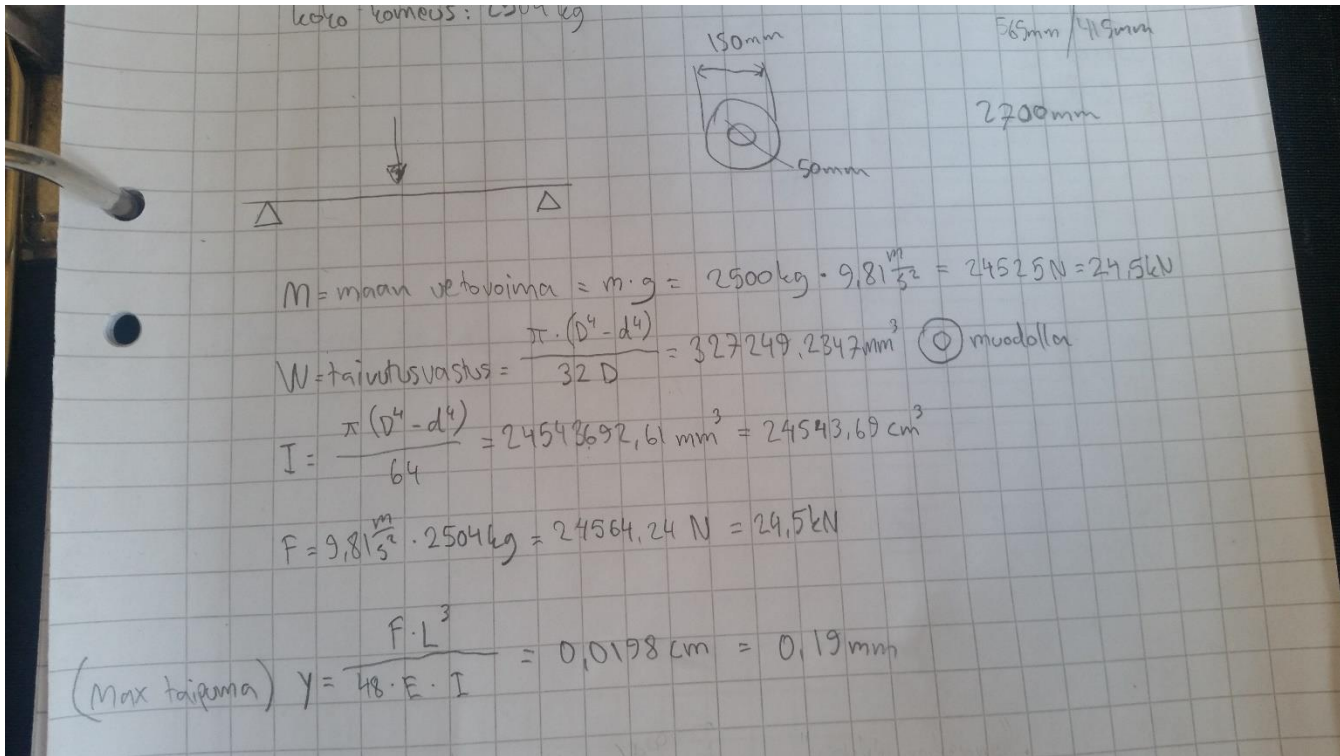 koko komeus: 2504 kg
150mm
565mm/419mm
2700mm
50mm
M=maan vetovoima = m·g = 2500kg · 9,81 m/s² = 24525N = 24,5kN
W=taivutusvastus = π·(D⁴-d⁴)/32 D = 327249,2347mm³ muodolla
I = π(D⁴-d⁴)/64 = 24543692,61 mm³ = 24543,69 cm³
F = 9,81 m/s² · 2504kg = 24564,24 N = 24,5kN
(Max taipuma) y = F·L³/48·E·I = 0,0198 cm = 0,19mm